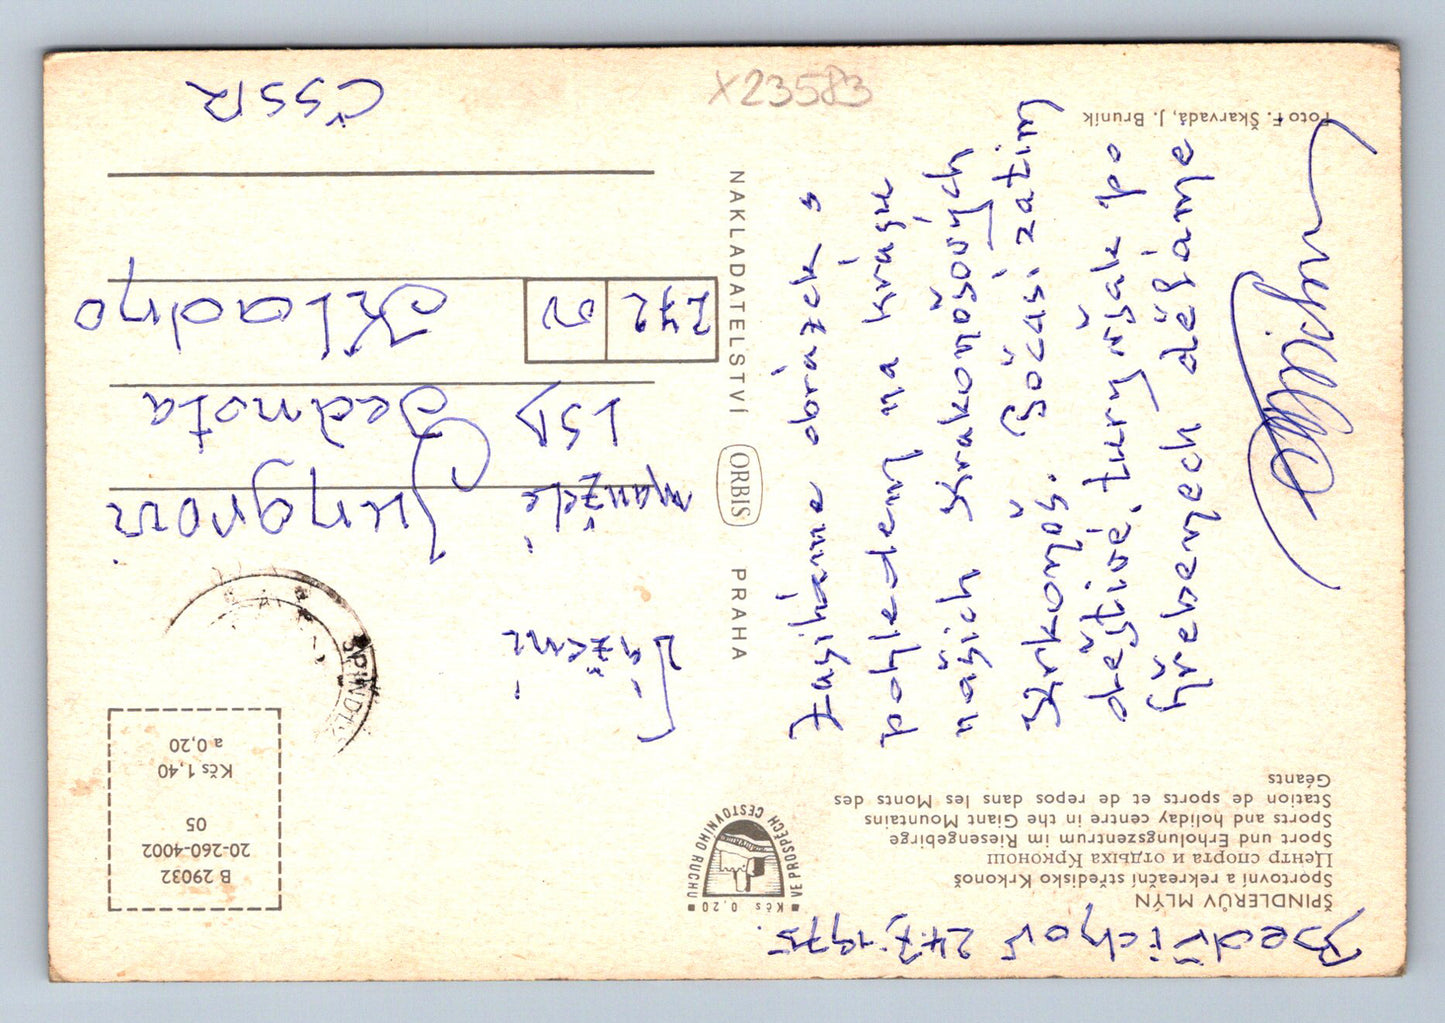 ŠPINDLERŮV MLÝN
Sportovní a rekreační středisko Krkonoš
Центр спорта и отдыха Крконош
Sport und Erholungszentrum im Riesengebirge
Sports and holiday centre in the Giant Mountains
Station de sports et de repos dans les Monts des
Géants
Bedřichov 24.7.1975.
Zasíláme obrázek s
pohledem na krásu
našich Krakonošových
Krkonoš. Počasí zatím
deštivé, tury však po
hřebenech děláme
Foto F. Škarvadá, J. Bruník
Kčs 0,20
VE PROSPĚCH CESTOVNÍHO RUCHU
NAKLADATELSTVÍ ORBIS PRAHA
X23583
B 29032
20-260-4002
05
Kčs 1,40
a 0,20
ŠPINDL
Vážení
manželé Jungrovi
LSD Jednota
272 00 Kladno
ČSSR